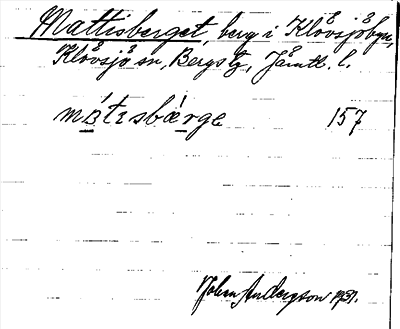 Mattisberget, berg i Klövsjöbyn,
Klövsjö sn, Bergs tg, Jämtl. l.
mátɪsbǽrge 157
John Andersson 1931.